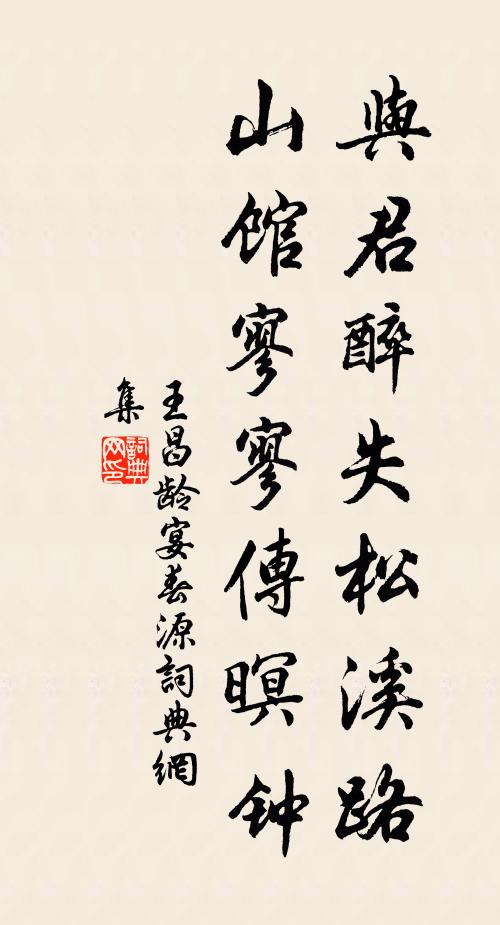 與君醉失松溪路
山馆寥寥傳暝钟
王昌龄宴春源詞典網
集
詞典
网印